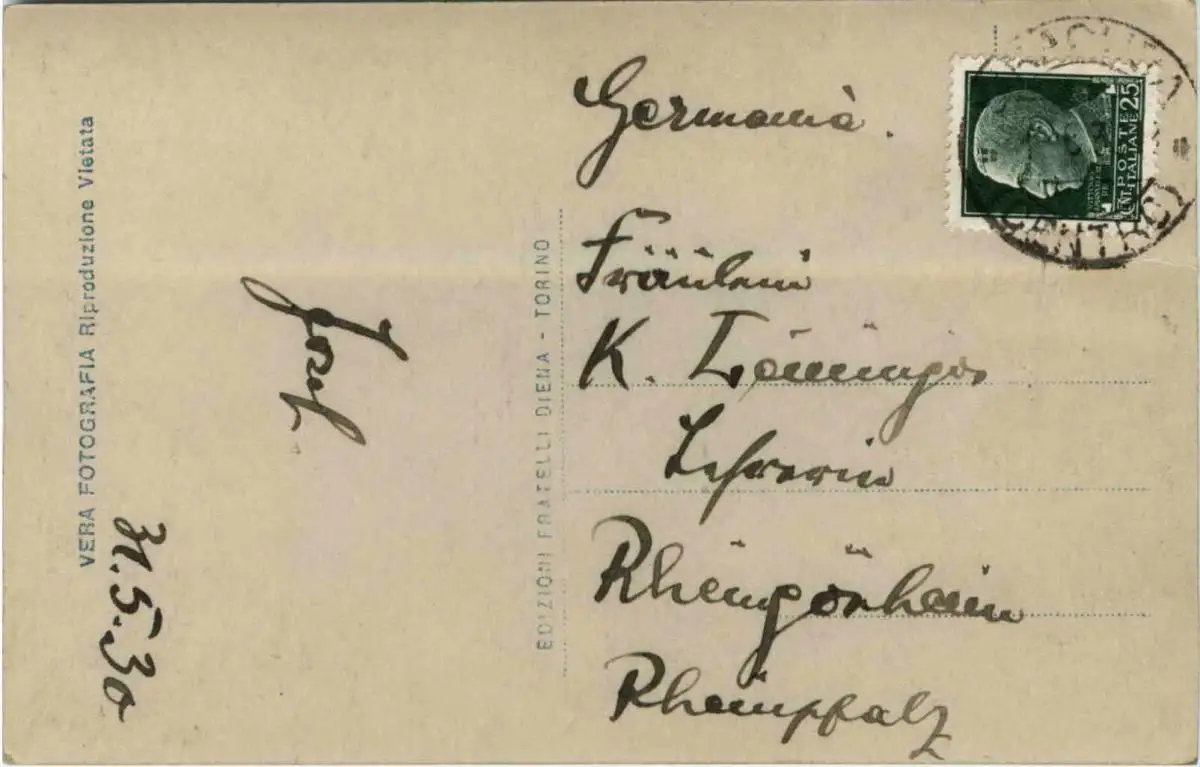 VERA FOTOGRAFIA Riproduzione Vietata
31.5.30
Josef
EDIZIONI FRATELLI DIENA - TORINO
Germania.
Fräulein
K.
Lehrerin
Rheingönheim
Rheinpfalz
POSTE
ITALIANE
CENT. 25
CENTRO